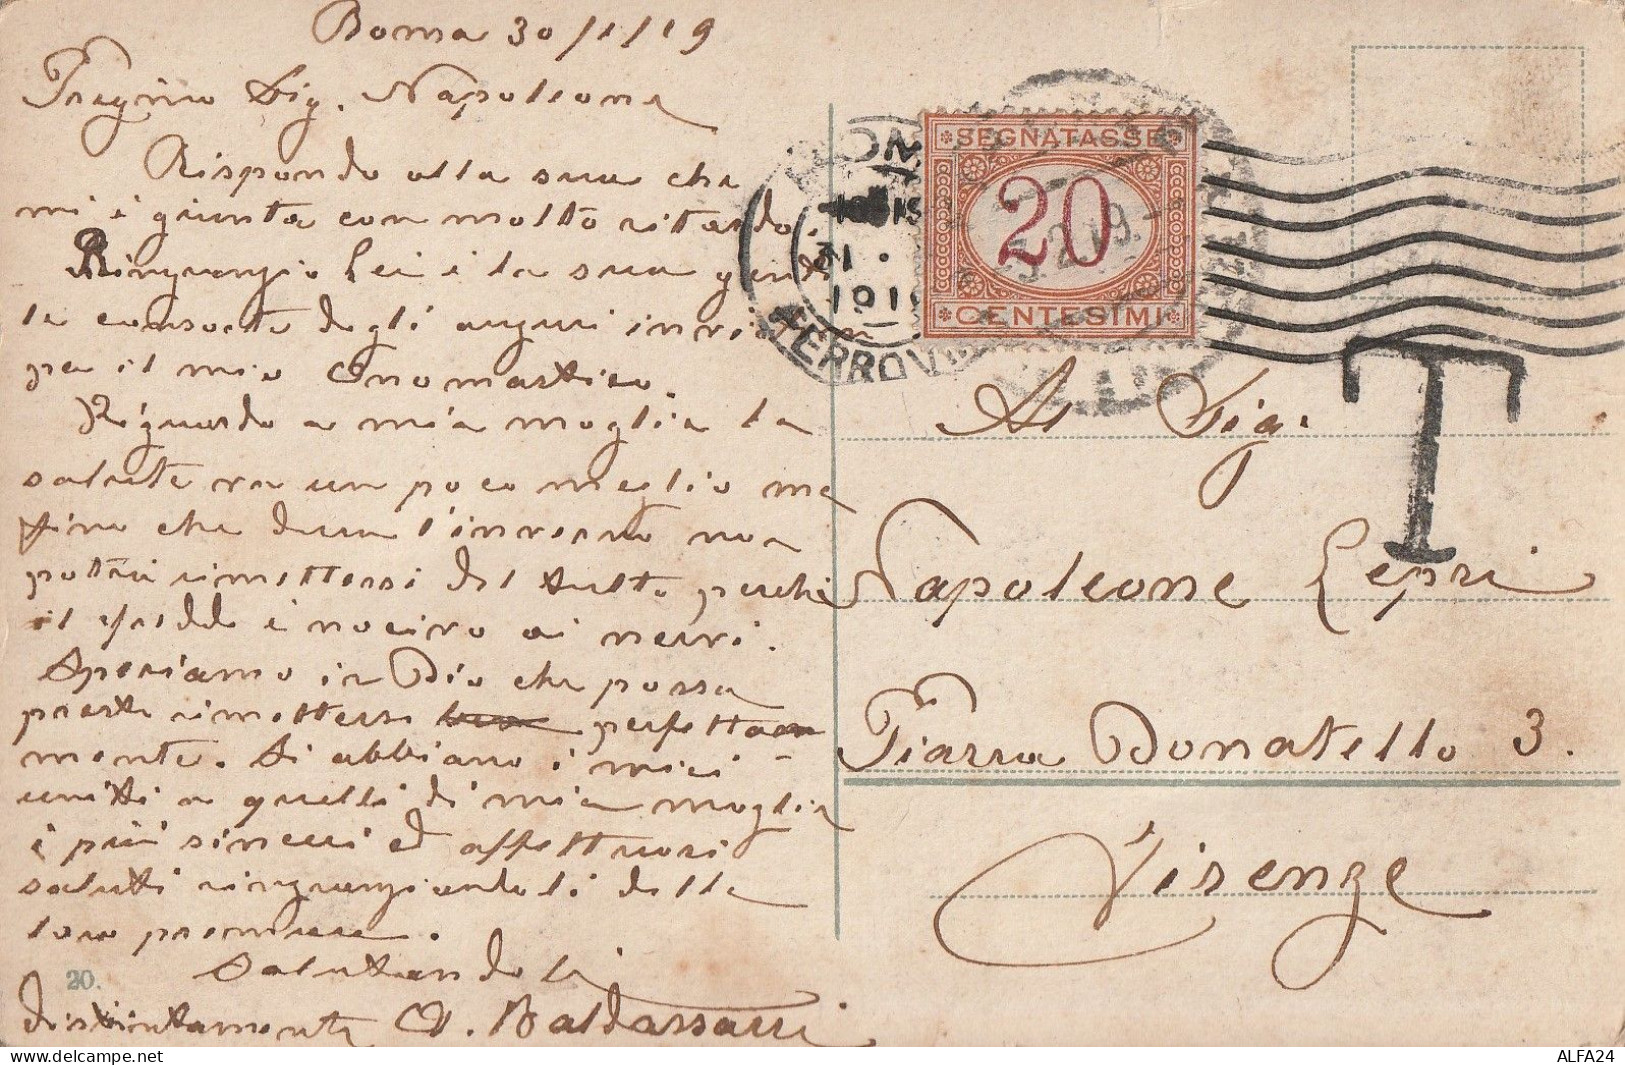 Roma 30/1/19
Pregmo Sig. Napoleone
Rispondo alla sua che
mi è giunta con molto ritardo.
Ringrazio Lei e la sua genti
le consorte degli auguri invia
per il mio Onomastico.
Riguardo a mia moglie la
salute va un poco meglio ma
fino che dura l'inverno non
potrà rimettersi del tutto perchè
il freddo è nocivo ai nervi.
Speriamo in Dio che possa
presto rimettersi perfetta
mente. Si abbiano i miei
uniti a quelli di mia moglie
i più sinceri ed affettuosi
saluti ringraziandoli delle
loro premure.
Salutandoli
distintamente A. Baldassarri
20.
ROM
31 .
191
FERROV
SEGNATASSE
20
CENTESIMI
5.2.19.
T
Al Sig.
Napoleone Lepri
Piazza Donatello 3.
Firenze
delcampe.net
ALFA24